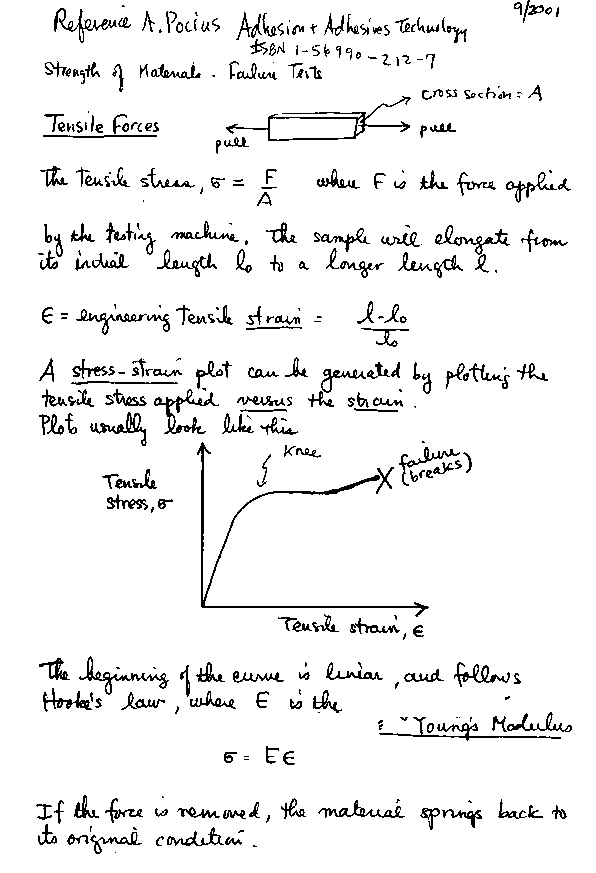 9/2001
Reference A. Pocius Adhesion + Adhesives Technology
ISBN 1-56990-212-7
Strength of Materials - Failure Tests
cross section = A
Tensile Forces
pull
pull
The Tensile stress, σ = F/A where F is the force applied
by the testing machine. The sample will elongate from
its initial length lo to a longer length l.
ε = engineering Tensile strain = l-lo/lo
A stress-strain plot can be generated by plotting the
tensile stress applied versus the strain.
Plots usually look like this
Knee
failure
(breaks)
Tensile
stress, σ
Tensile strain, ε
The beginning of the curve is linear, and follows
Hooke's law, where E is the
≡ Young's Modulus
σ = Eε
If the force is removed, the material springs back to
its original condition.